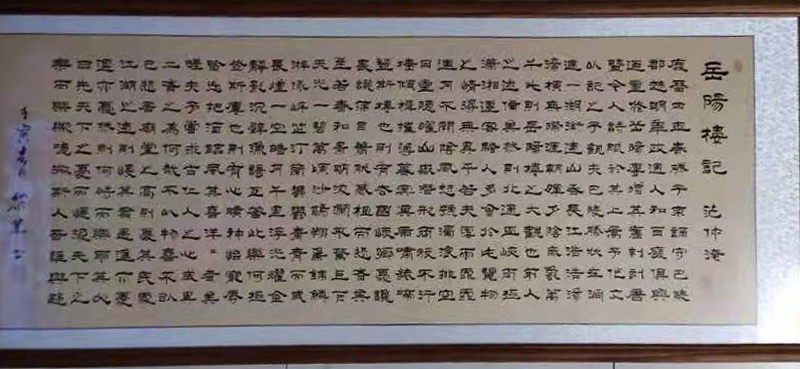 岳陽樓記 范仲淹
慶曆四年春滕子京謫守巴陵
郡越明年政通人和百廢俱興
乃重修岳陽樓增其舊制刻唐
賢今人詩賦於其上屬予作文
以記之予觀夫巴陵勝狀在洞
庭一湖銜遠山吞長江浩浩湯
湯橫無際涯朝暉夕陰氣象萬
千此則岳陽樓之大觀也前人
之述備矣然則北通巫峽南極
瀟湘遷客騷人多會於此覽物
之情得無異乎若夫霪雨霏霏
連月不開陰風怒號濁浪排空
日星隱耀山嶽潛形商旅不行
檣傾楫摧薄暮冥冥虎嘯猿啼
登斯樓也則有去國懷鄉憂讒
畏譏滿目蕭然感極而悲者矣
至若春和景明波瀾不驚上下
天光一碧萬頃沙鷗翔集錦鱗
游泳岸芷汀蘭鬱鬱青青而或
長煙一空皓月千里浮光耀金
靜影沉璧漁歌互答此樂何極
登斯樓也則有心曠神怡寵辱
皆忘把酒臨風其喜洋洋者矣
嗟夫予嘗求古仁人之心或異
二者之為何哉不以物喜不以
己悲居廟堂之高則憂其民處
江湖之遠則憂其君是進亦憂
退亦憂然則何時而樂耶其必
曰先天下之憂而憂後天下之
樂而樂歟噫微斯人吾誰與歸